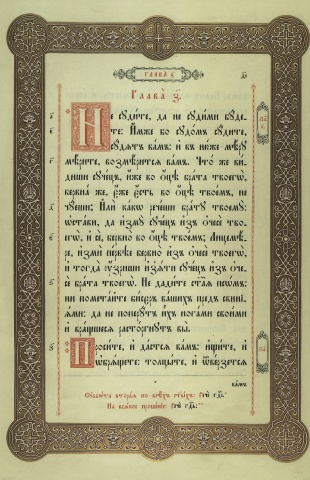 Глава̀ з҃.
Не сꙋди́те, да не сꙋди́ми бꙋ́де-
те: И҆́мже бо сꙋдо́мъ сꙋ́дите,
сꙋ́дѧтъ ва́мъ: и҆ въ ню́же мѣ́рꙋ
мѣ́рите, возмѣ́ритсѧ ва́мъ. Что́ же ви́-
диши сꙋче́цъ, и҆́же во ѻ҆́цѣ бра́та твоегѡ̀,
бервна́ же, є҆́же є҆́сть во ѻ҆́цѣ твое́мъ, не
чꙋ́еши; И҆лѝ ка́кѡ рече́ши бра́тꙋ твоемꙋ̀:
ѡ҆ста́ви, да и҆змꙋ̀ сꙋче́цъ и҆з̾ ѻ҆чесѐ тво-
егѡ̀, и҆ сѐ, бервно̀ во ѻ҆́цѣ твое́мъ; Лицемѣ́-
ре, и҆змѝ пе́рвѣе бервно̀ и҆з̾ ѻ҆чесѐ твоегѡ̀,
и҆ тогда̀ ᲂу҆́зриши и҆з̾ѧ́ти сꙋче́цъ и҆з̾ ѻ҆че-
сѐ бра́та твоегѡ̀. Не дади́те ст҃а̑ѧ псѡ́мъ:
ни помета́йте би́серъ ва́шихъ пред̾ свинїѧ́-
ми: да не поперꙋ́тъ и҆́хъ нога́ми свои́ми
и҆ вра́щшесѧ расто́ргнꙋтъ вы̀.
Проси́те, и҆ да́стсѧ ва́мъ: и҆щи́те, и҆
ѡ҆брѧ́щете: толцы́те, и҆ ѿве́рзетсѧ
ва́мъ
Сꙋббѡ́та втора́ѧ по всѣ́хъ ст҃ы́хъ:
На всѧ́кое проше́нїе: